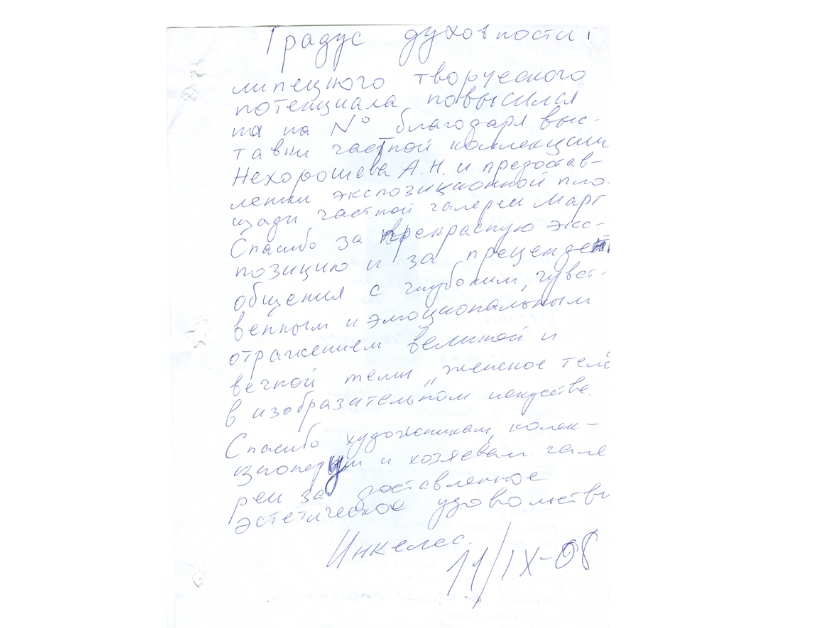 Градус духовности
липецкого творческого
потенциала повысился
на N° благодаря выс-
тавки частной коллекции
Нехорошева А.Н. и предостав-
лении экспозиционной пло-
щади частной галереи Март
Спасибо за прекрасную экс-
позицию и за прецедент
общения с глубоким, чувст-
венным и эмоциональным
отражением великой и
вечной темы „женское тело
в изобразательном искусстве.
Спасибо художникам, колек-
ционеру и хозяевам гале
реи за доставленное
эстетическое удовольстви
Инкелес.
11/IX-08